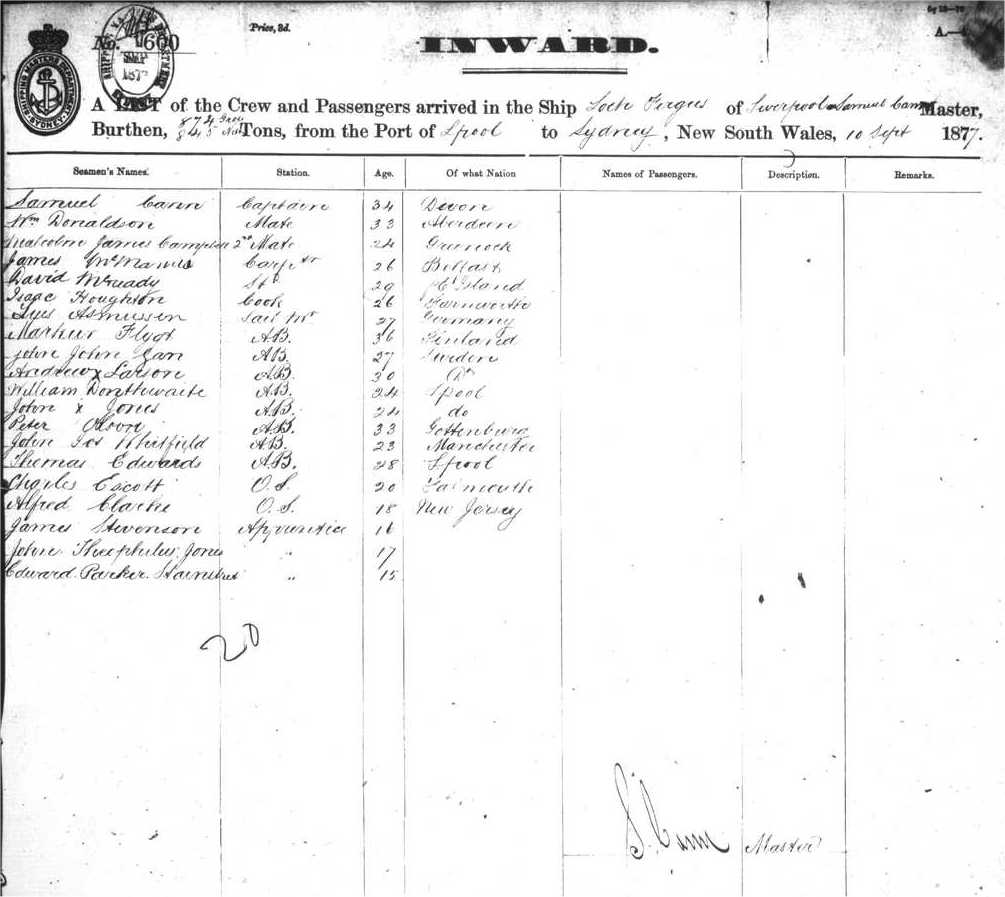 Price, 3d.
No. 660
INWARD.
A.—
SHIPPING MASTER'S DEPARTMENT SYDNEY
SEP 187
A LIST of the Crew and Passengers arrived in the Ship Loch Fergus of Liverpool Samuel Cann Master,
Burthen, 874 845 Tons, from the Port of Lpool to Sydney, New South Wales, 10 Sept 1877.
Seamen's Names. Station. Age. Of what Nation Names of Passengers. Description. Remarks.
Samuel Cann Captain 34 Devon
Wm Donaldson Mate 33 Aberdeen
Malcolm James Campbell 2nd Mate 24 Greenock
James McManus Carptr 26 Belfast
David McReady Std 29
Isaac Houghton Cook 26 Farnworth
Asmussen Sail Mr 27 Germany
Flyot A.B. 36 Finland
John John A.B. 27 Sweden
Andrew x Larson A.B. 30 Do
William Donthwaite A.B. 24 Lpool
John x Jones A.B. 24 do
Peter A.B. 33 Gottenburg
John Jos Whitfield A.B. 23 Manchester
Thomas Edwards A.B. 28 Lpool
Charles Escott O.S. 20 Falmouth
Alfred Clarke O.S. 18 New Jersey
James Stevenson Apprentice 16
John Theophilus Jones " 17
Edward Parker " 15
20
S. Cann Master